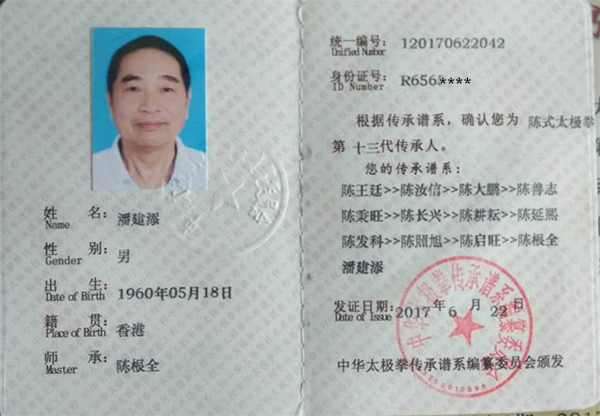 姓 名: 潘建添
Name
性 别: 男
Gender
出 生: 1960年05月18日
Date of Birth
籍 贯: 香港
Place of Birth
师 承: 陈根全
Master
统一编号: 120170622042
Unified Number
身份证号: R6563****
ID Number
根据传承谱系，确认您为 陈式太极拳
第 十三代传承人。
您的传承谱系:
陈王廷>>陈汝信>>陈大鹏>>陈善志
陈秉旺>>陈长兴>>陈耕耘>>陈延熙
陈发科>>陈照旭>>陈启旺>>陈根全
潘建添
发证日期: 2017 年 6 月 22 日
Date of Issue
中华太极拳传承谱系编纂委员会
中华太极拳传承谱系编纂委员会颁发